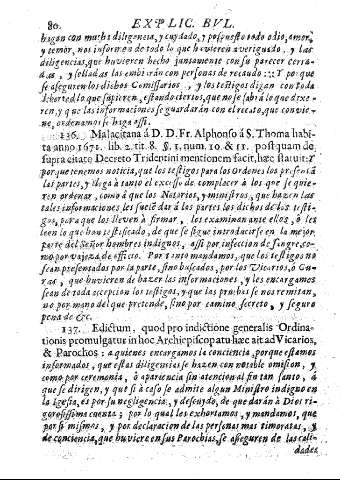 80. EXPLIC. BVL.
hagan con mucha diligencia, y cuydado, y pospuesto todo odio, amor,
y temor, nos informen de todo lo que huvieren averiguado, y las
diligencias, que huvieren hecho juntamente con su parecer cerra-
das, y selladas las embiràn con personas de recaudo :: Y porque
se aseguren los dichos Comissarios, y los testigos digan con toda
libertad lo que supieren, estando ciertos, que no se sabrà lo que dixe-
ren, y que las informaciones se guardaràn con el recato, que convie-
ne, ordenamos se haga assi.
136. Malacitana à D. D. Fr. Alphonso à S. Thoma habi-
ta anno 1671. lib. 2. tit. 8. §. 1. num. 10. & 11. postquam de
supra citato Decreto Tridentini mentionem facit, hæc statuit: Y
porque tenemos noticia, que los testigos para los Ordenes los presentā
las partes, y llega à tanto el excesso de complacer à los que se quie-
ren ordenar, como à que los Notarios, y ministros, que hazen las
tales informaciones les fien dàr à las partes los dichos de los testi-
gos, para que los lleven à firmar, y los examinan ante ellos, ò les
leen lo que han testificado, de que se sigue introducirse en la mejor
parte del Señor hombres indignos, assi por infeccion de sangre, co-
mo por vajeza de oficio. Por tanto mandamos, que los testigos no
sean presentados por la parte, sino buscados, por los Vicarios, ò Cu-
ras, que huvieren de hazer las informaciones, y les encargamos
sean de toda excepcion los testigos, y que las pruebas se nos remitan,
no por mano del que pretende, sino por camino secreto, y seguro
pena de &c.
137. Edictum, quod pro indictione generalis Ordina-
tionis promulgatur in hoc Archiepiscopatu hæc ait ad Vicarios,
& Parochos: a quienes encargamos la conciencia, porque estamos
informados, que estas diligencias se hazen con notable omision, y
como por ceremonia, ò apariencia sin atencion al fin tan santo, à
que se dirigen, y que si à caso se admite algun Ministro indigno en
la Iglesia, es por su negligencia, y descuydo, de que daràn à Dios ri-
gorosissima cuenta; por lo qual les exhortamos, y mandamos, que
por si mismos, y por declaracion de las personas mas timoratas, y
de conciencia, que huviere en sus Parochias, se aseguren de las cali-
dades